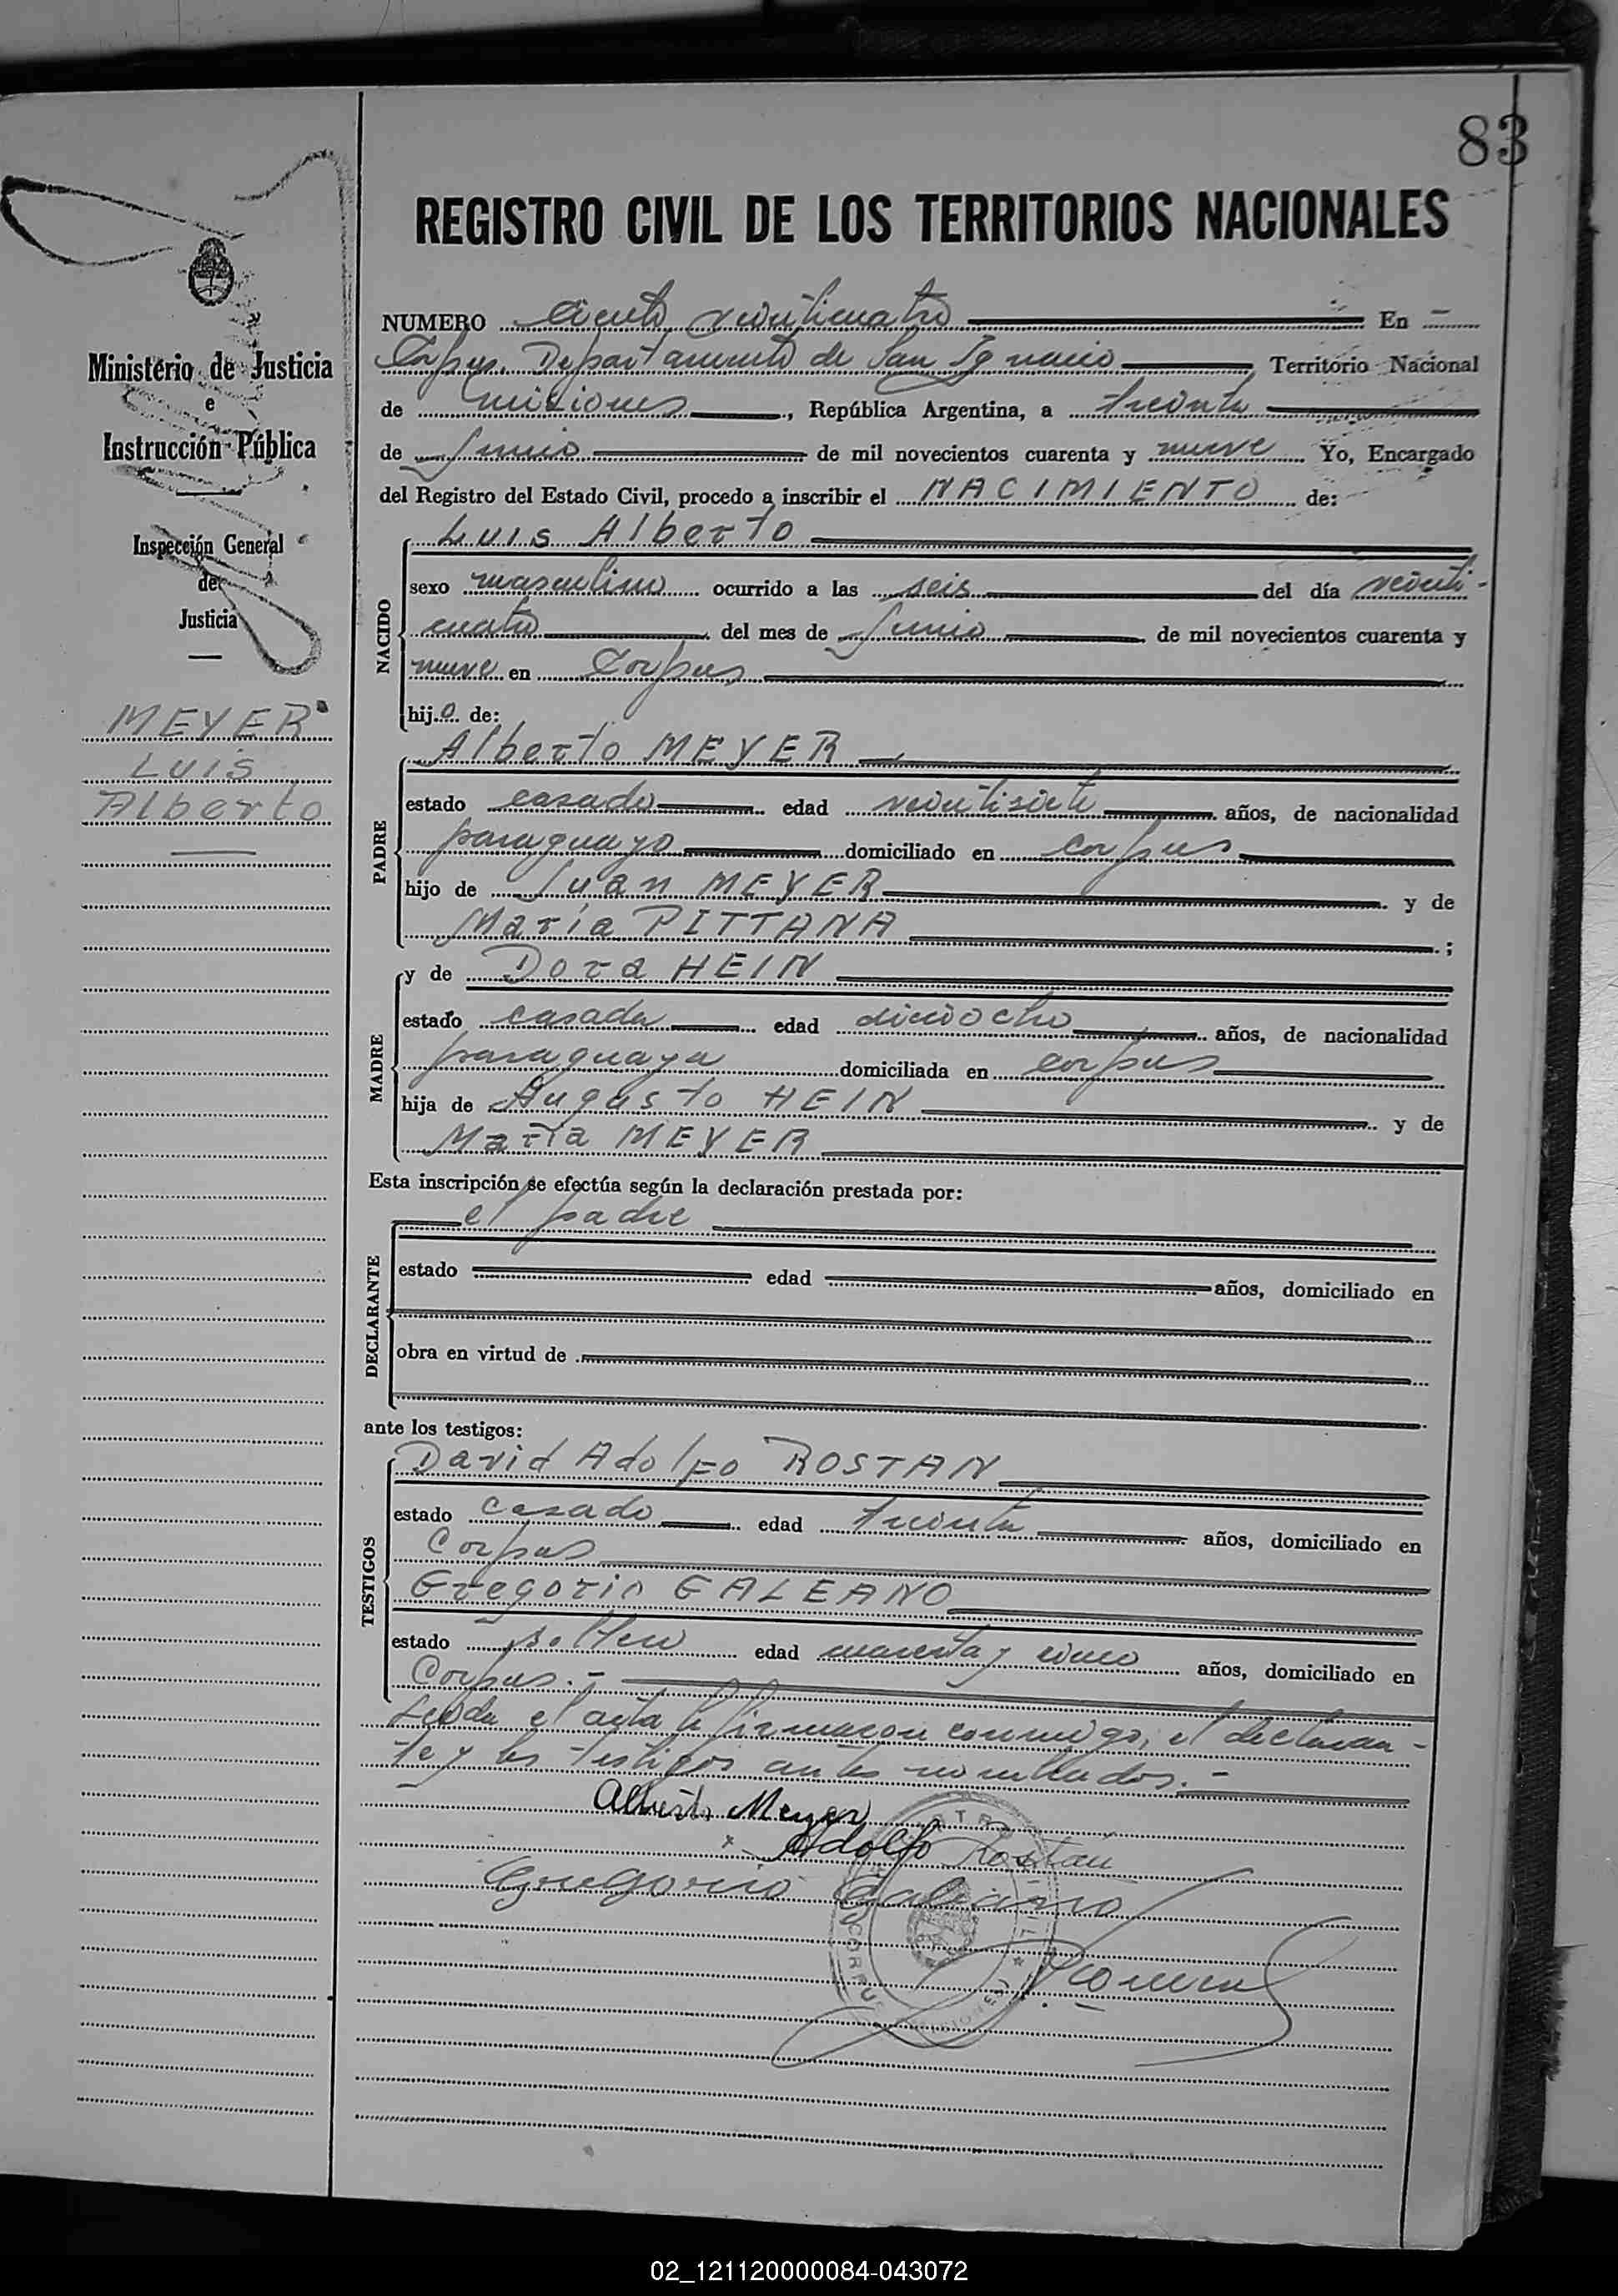 83
REGISTRO CIVIL DE LOS TERRITORIOS NACIONALES
Ministerio de Justicia
e
Instrucción Pública
Inspección General
de
Justicia
MEYER
LUIS
Alberto
NUMERO ciento veinticuatro En
Corpus. Departamento de San Ignacio Territorio Nacional
de misiones, República Argentina, a treinta
de Junio de mil novecientos cuarenta y nueve Yo, Encargado
del Registro del Estado Civil, procedo a inscribir el NACIMIENTO de:
Luis Alberto
NACIDO
sexo masculino ocurrido a las seis del día veinti-
cuatro del mes de Junio de mil novecientos cuarenta y
nueve en Corpus
hijo de:
Alberto MEYER
PADRE
estado casado edad veintisiete años, de nacionalidad
paraguayo domiciliado en corpus
hijo de Juan MEYER y de
María PITTANA ;
MADRE
y de Dora HEIN
estado casada edad dieciocho años, de nacionalidad
paraguaya domiciliada en corpus
hija de Augusto HEIN y de
María MEYER
Esta inscripción se efectúa según la declaración prestada por:
el padre
DECLARANTE
estado edad años, domiciliado en
obra en virtud de
ante los testigos:
David Adolfo ROSTAN
TESTIGOS
estado casado edad treinta años, domiciliado en
Corpus
Gregorio GALEANO
estado soltero edad cuarenta y cinco años, domiciliado en
Corpus.-
Leída el acta la firmaron conmigo, el declaran-
te y los testigos antes nombrados.-
Alberto Meyer
Adolfo Rostán
Gregorio Galeano
02_121120000084-043072